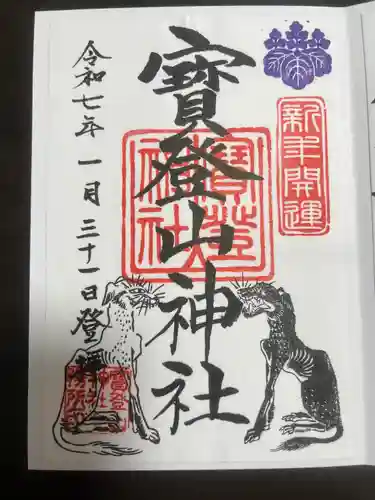 新年開運
寶登山神社
寶登山神社
令和七年一月三十一日登拝